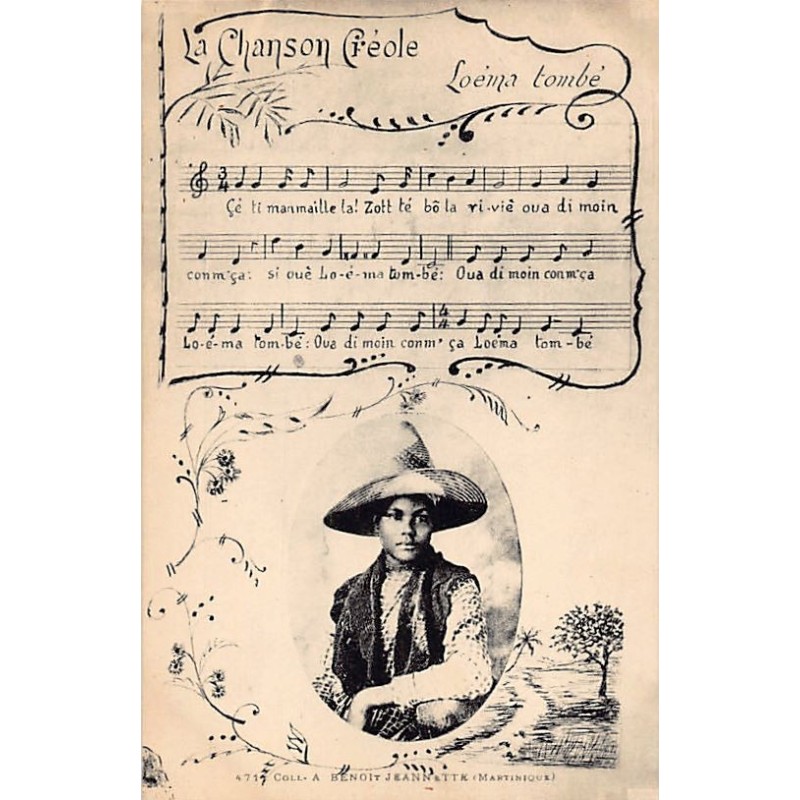 La Chanson Créole
Loéma tombé
3 4
Çé ti manmaille la! Zott té bô la ri-viè oua di moin
conm'ça: si ouè Lo-é-ma tom-bé: Oua di moin conm'ça
4 4
Lo-é-ma tom-bé: Oua di moin conm' ça Loéma tom-bé
4717 COLL. A BENOIT JEANNETTE (MARTINIQUE)